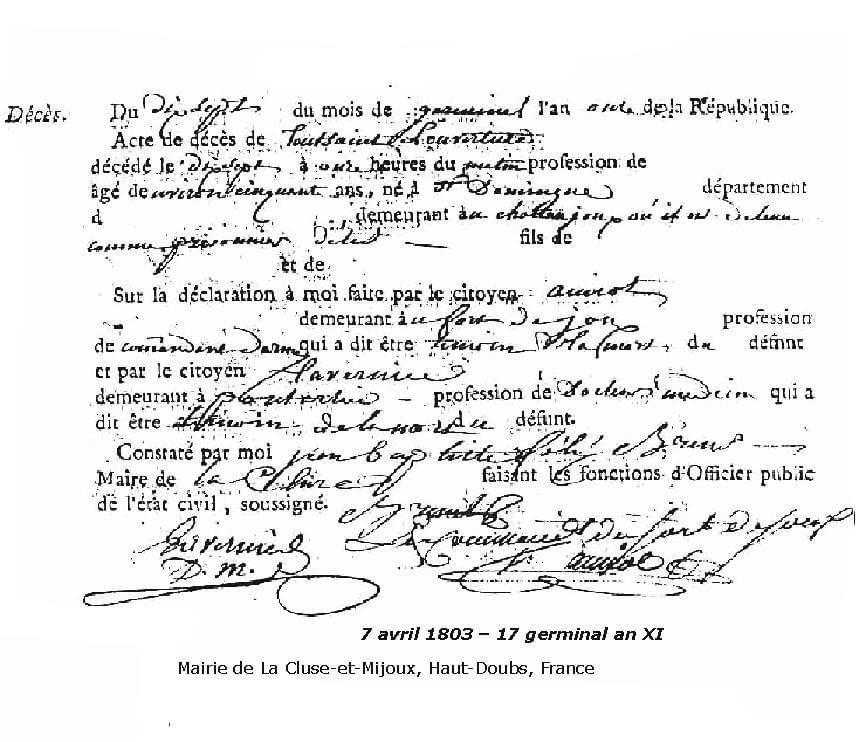 Décès. Du dix sept du mois de germinal l'an onze de la République.
Acte de décès de Toussaint Louverture
décédé le dix sept à onze heures du matin profession de
âgé de environ cinquant ans, né à St Domingue département
d demeurant au de joux
comme prisonnier d'état fils de
et de
Sur la déclaration à moi faite par le citoyen amiot
demeurant au fort de joux profession
de comandant darme qui a dit être temoin de la mort du défunt
et par le citoyen tavernier
demeurant à pontarlier profession de Docteur medecin qui a
dit être temoin de la mort du défunt.
Constaté par moi jean baptiste
Maire de la Cluse faisant les fonctions d'Officier public
de l'état civil, soussigné.
Le Commandant du fort de joux
Tavernier
D. m. amiot
7 avril 1803 – 17 germinal an XI
Mairie de La Cluse-et-Mijoux, Haut-Doubs, France